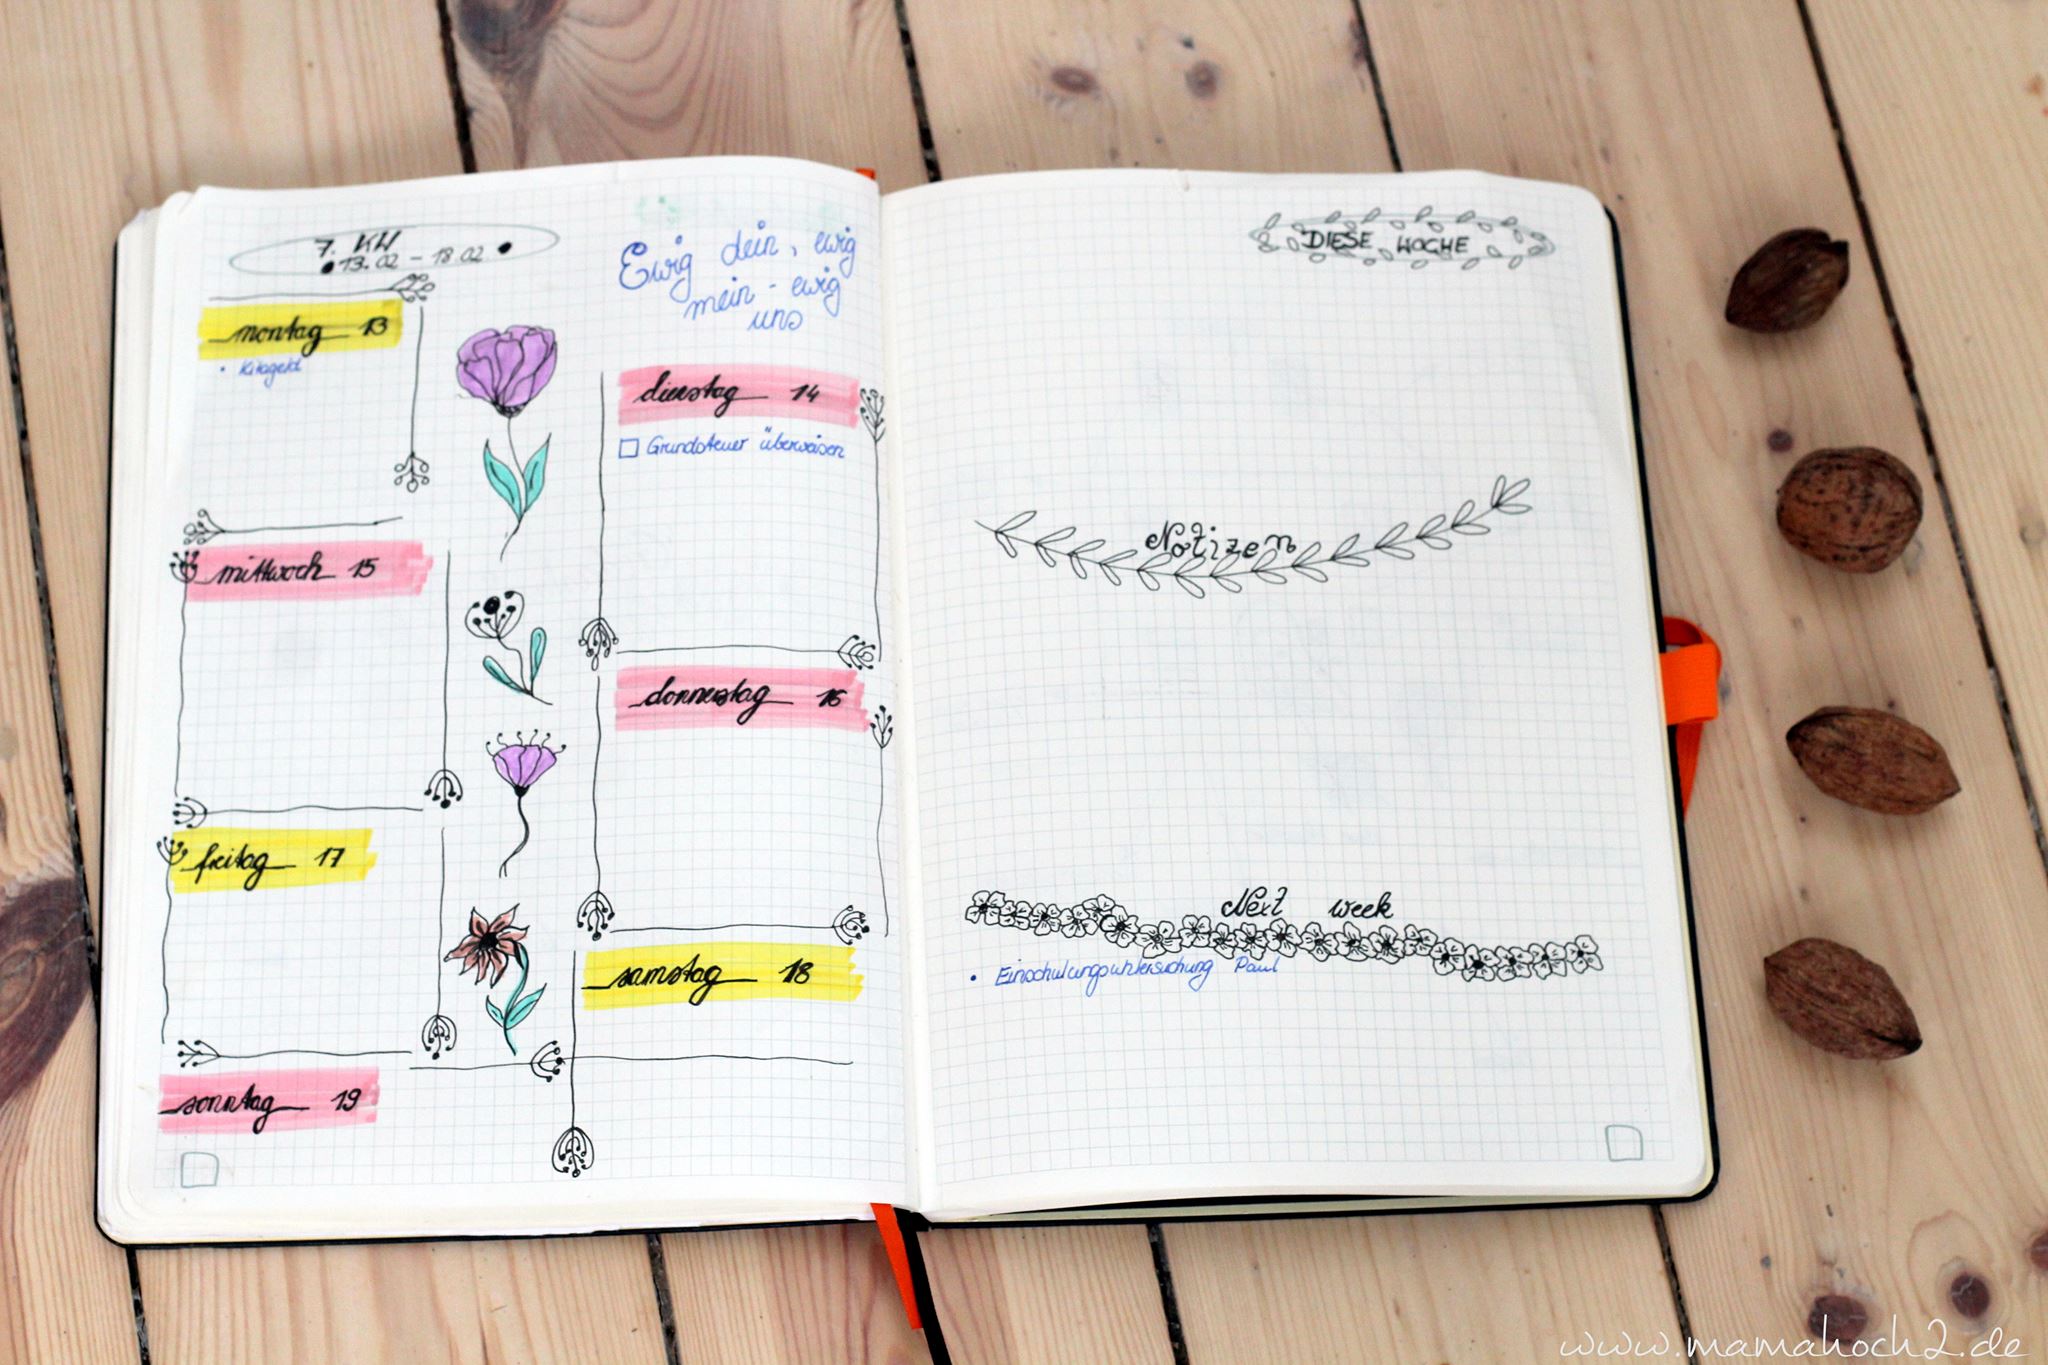 7. KW
13.02 - 18.02
Ewig dein, ewig
mein - ewig
uns
montag 13
• Kitageld
dienstag 14
Grundsteuer überweisen
mittwoch 15
donnerstag 16
freitag 17
samstag 18
sonntag 19
DIESE WOCHE
Notizen
Next week
• Einschulungsuntersuchung Paul
www.mamahoch2.de